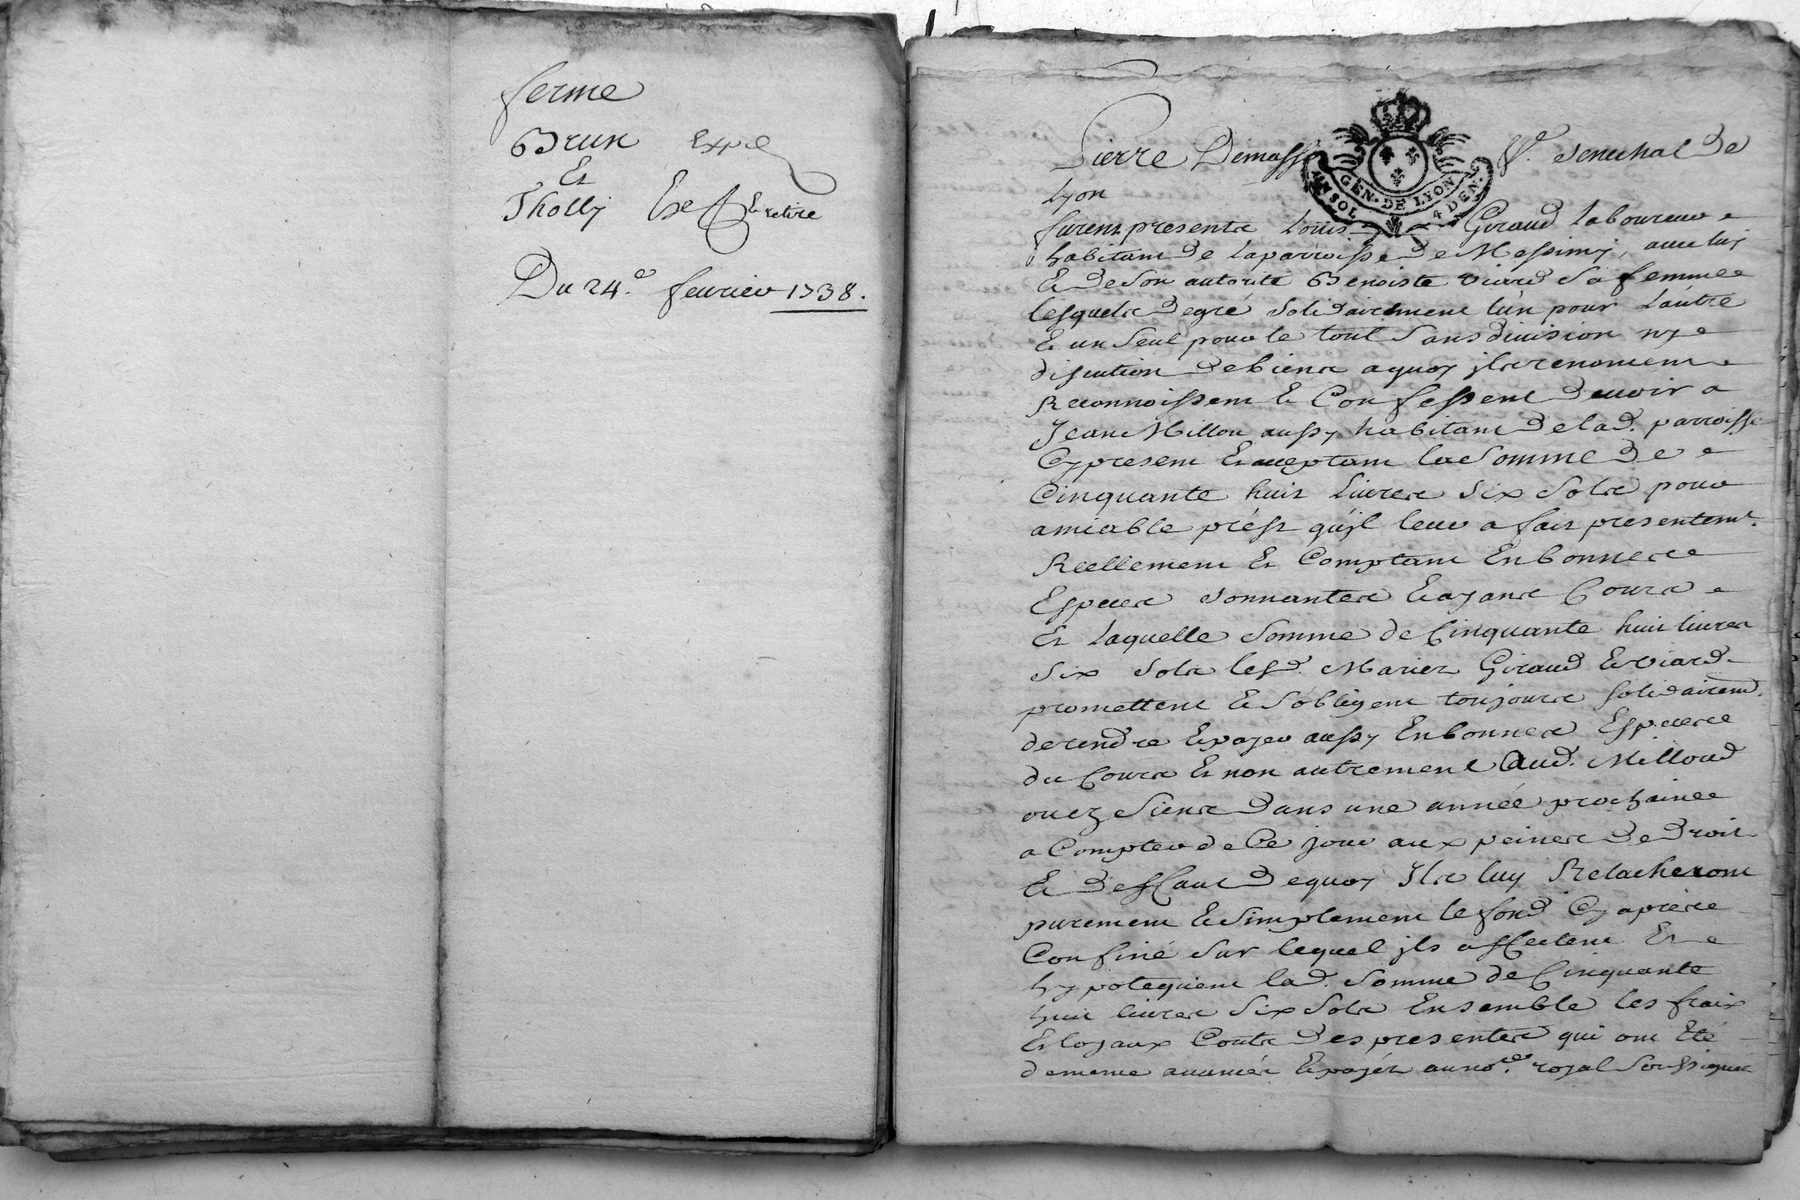 ferme
Brun Exp.é
Et
Tholly Exp.é Extraire
Du 24.e feurier 1738.
Pierre Demasso S.r Senechal De
Lyon
GEN. DE LYON
UN SOL 4 DEN.
furent presents Louis Giraud Laboureur
habitant De La parroisse De Messimy, auec luy
Et De Son autorité Benoiste Viard Sa femme
Lesquels De gré Solidairement l'un pour L'autre
Et un Seul pour le tout Sans Diuision ny
discution De biens a quoy ils renoncent
Reconnoissent Et Confessent Deuoir a
Jean Millou aussy habitant De lad. parroisse
Cy present Et acceptant La Somme De
Cinquante huit Liures Six Sols pour
amiable prest qu'jl leur a fait presentem.t
Reellement Et Comptant En bonnes
Especes Sonnantes Et ayant Cours
Et Laquelle Somme de Cinquante huit liures
Six Sols lesd. Mariez Giraud Et Viard
promettent Et S'obligent toujours Solidairem.t
de rendre Et payer aussy En bonnes Especes
du Cours Et non autrement Aud. Milloud
ou ez Siens Dans une année prochaine
a Compter de Ce jour aux peines De Droit
Et Deffaut De quoy Ils luy Relacheront
purement Et Simplement le fond Cy apres
Confiné Sur lequel jls affectent Et
hypotequent lad. Somme de Cinquante
huit liures Six Sols Ensemble les fraix
Et loyaux Couts Des presentes qui ont Eté
de meme auancés Et payés au no.re royal Soussigné